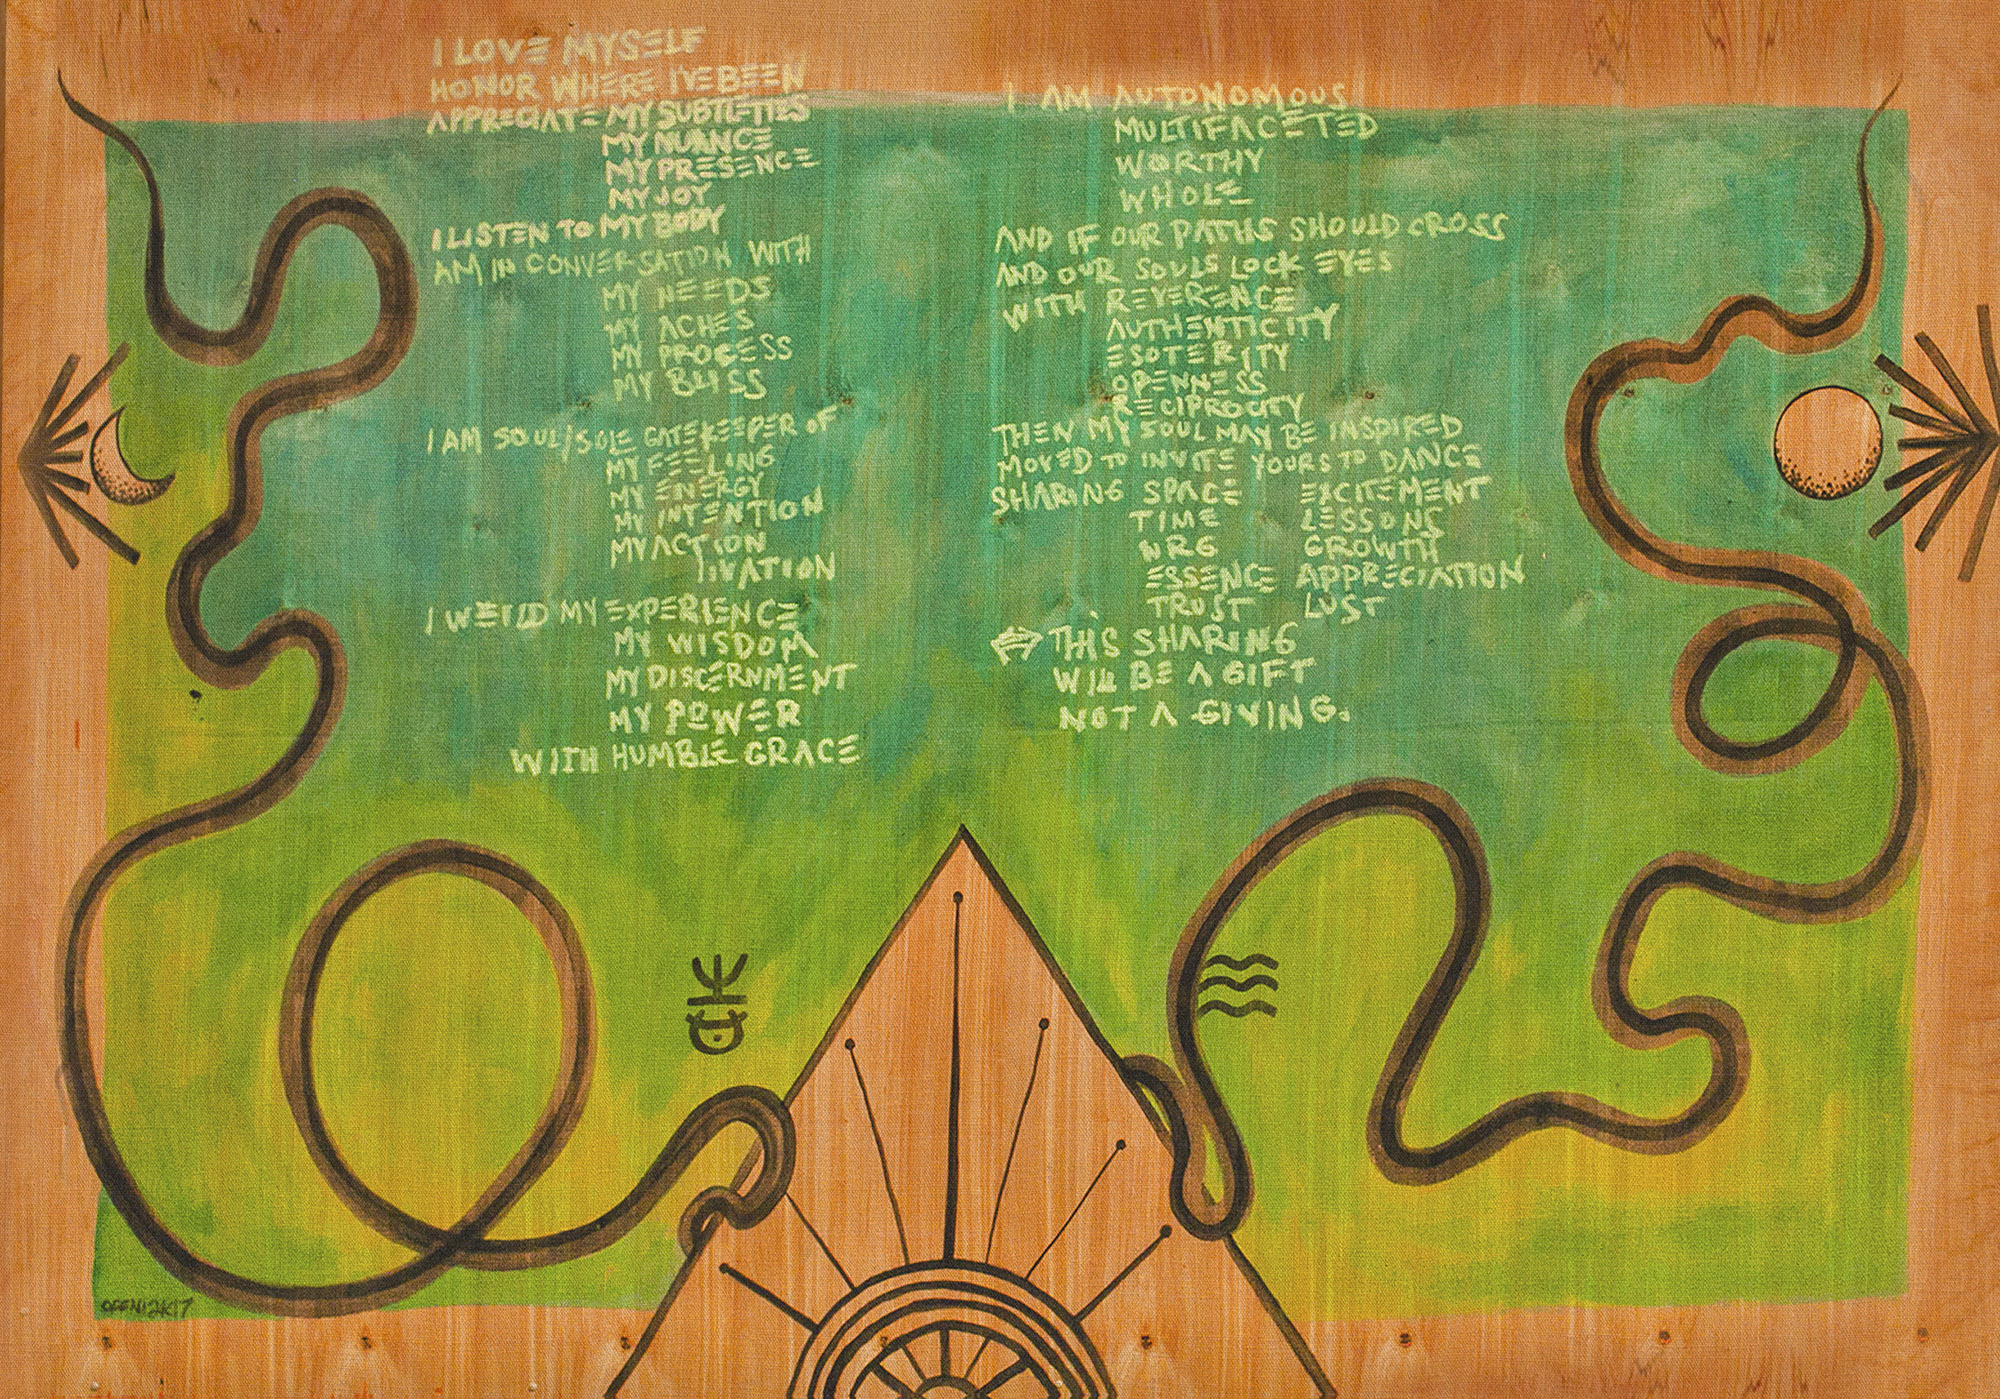 I LOVE MYSELF
HONOR WHERE I'VE BEEN
APPRECIATE MY SUBTLETIES
MY NUANCE
MY PRESENCE
MY JOY
I LISTEN TO MY BODY
AM IN CONVERSATION WITH
MY NEEDS
MY ACHES
MY PROCESS
MY BLISS
I AM SOUL/SOLE GATEKEEPER OF
MY FEELING
MY ENERGY
MY INTENTION
MY ACTION
VATION
I WEILD MY EXPERIENCE
MY WISDOM
MY DISCERNMENT
MY POWER
WITH HUMBLE GRACE
I AM AUTONOMOUS
MULTIFACETED
WORTHY
WHOLE
AND IF OUR PATHS SHOULD CROSS
AND OUR SOULS LOCK EYES
WITH REVERENCE
AUTHENTICITY
ESOTERITY
OPENNESS
RECIPROCITY
THEN MY SOUL MAY BE INSPIRED
MOVED TO INVITE YOURS TO DANCE
SHARING SPACE EXCITEMENT
TIME LESSONS
NRG GROWTH
ESSENCE APPRECIATION
TRUST LUST
⇔ THIS SHARING
WILL BE A GIFT
NOT A GIVING.